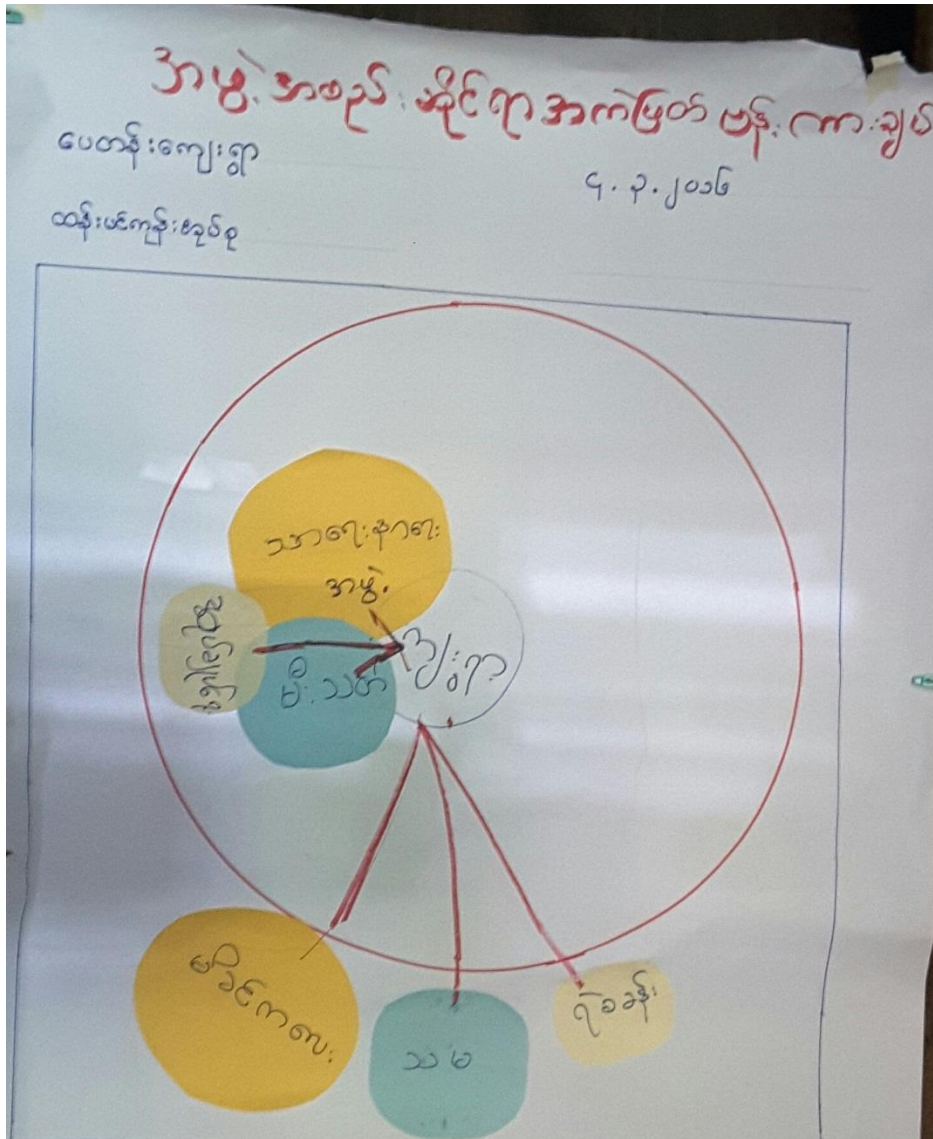 အဖွဲ့အစည်းဆိုင်ရာအကဲဖြတ်ဗန်းကားချပ်
ပေတန်းကျေးရွာ
၄.၃.၂၀၁၆
ထန်းပင်ကုန်းအုပ်စု
သာရေးနာရေး
အဖွဲ့
ကျေးရွာ
မီးသတ်
မိခင်ကလေး
သမ
ရဲစခန်း